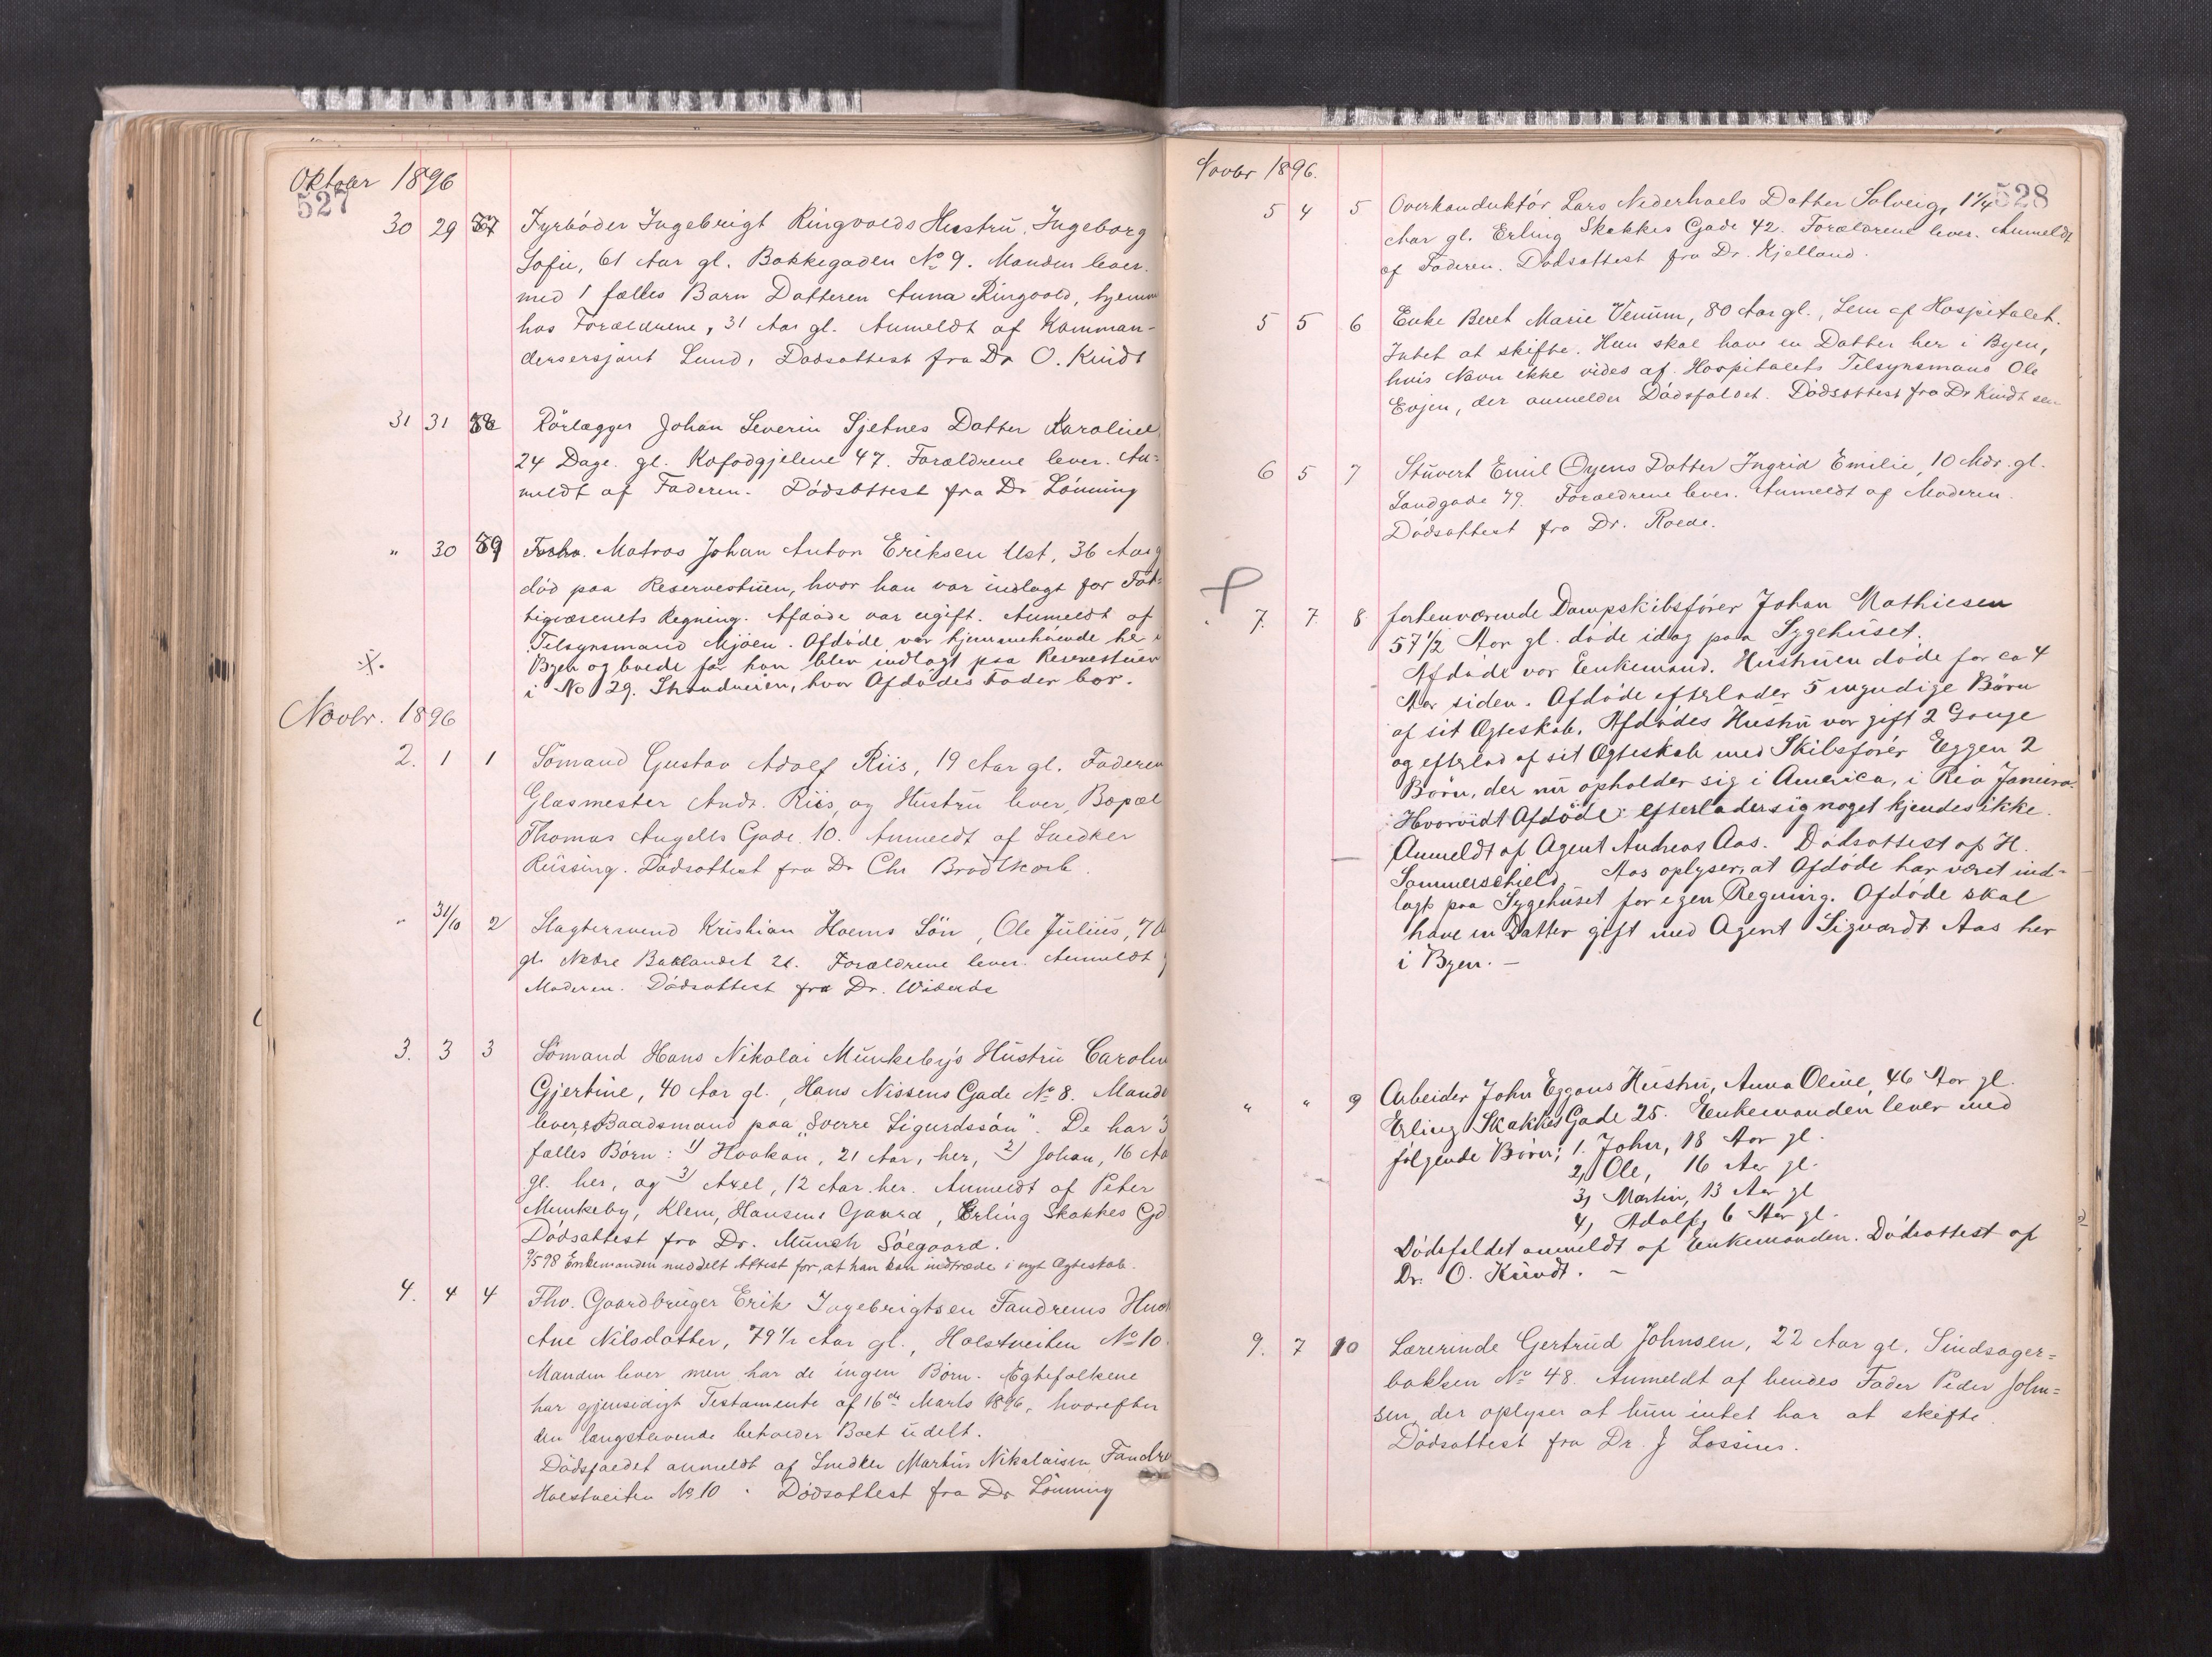 Oktober 1896
527
30 29 87 Fyrböder Ingebrigt Ringvolds Hustru, Ingeborg
Sofie, 61 Aar gl. Bakkegaden No 9. Manden lever
med 1 fælles Barn Datteren Anna Ringvold, hjemme
hos Forældrene, 31 Aar gl. Anmeldt af Komman-
dersersjant Lund, Dødsattest fra Dr O. Kindt
31 31 88 Rörlægger Johan Severin Sjetnes Datter Karoline
24 Dage gl. Kafodgjelene 47. Forældrene lever. An-
meldt af Faderen. Dødsattest fra Dr Lönning
" 30 89 Forhv. Matros Johan Anton Eriksen Ust, 36 Aar g
död paa Reservestuen, hvor han var indlagt for Fat-
tigvæsenets Regning. Afdøde var ugift. Anmeldt af
Tilsynsmand Mjöen. Afdöde var hjemmehörende her i
Byen og boede för han blev indlagt paa Reservestuen
i No 29. Strandveien, hvor Afdödes Fader bor.
Novbr. 1896
2. 1 1 Sömand Gustav Adolf Riis, 19 Aar gl. Faderen
Glasmester Andr. Riis, og Hustru lever, Bopæl
Thomas Angells Gade 10. Anmeldt af Snedker
Rüssing. Dødsattest fra Dr Chr Brodtkorb.
" 31/10 2 Slagtersvend Kristian Hoems Sön, Ole Julius, 7
gl. Nedre Baklandet 21. Forældrene lever. Anmeldt
Moderen. Dødsattest fra Dr.
3. 3 3 Sömand Hans Nikolai Munkeby's Hustru Caroline
Gjertine, 40 Aar gl., Hans Nissens Gade No 8. Mand
lever, Baadsmand paa "Sverre Sigurdssön". De har 3
fælles Börn: 1) Haakon, 21 Aar, her, 2) Johan, 16 Aa
gl. her, og 3) Axel, 12 Aar her. Anmeldt af Peter
Munkeby, Klem, Hansens Gaard, Erling Skakkes Gd
Dødsattest fra Dr. Munch Söegaard.
9/5 98 Enkemanden meddelt Attest for, at han kan indtræde i nyt Ægteskab.
4. 4 4 Fhv. Gaardbruger Erik Ingebrigtsen Fandrems Hust
Ane Nilsdatter, 79 1/2 Aar gl., Holstveiten No 10.
Manden lever men har de ingen Börn. Egtefolkene
har gjensidigt Testamente af 16de Marts 1896, hvorefter
den længstlevende beholder Boet udelt.
Dødsfaldet anmeldt af Snedker Martin Nikolaisen Fandre
Holstveiten No 10. Dødsattest fra Dr Lönning
Novbr 1896.
528
5 4 5 Overkonduktör Lars Nederhaels Datter Solveig, 1 1/4
Aar gl. Erling Skakkes Gade 42. Forældrene lever. Anmeldt
af Faderen. Dødsattest fra Dr. Kjelland.
5 5 6 Enke Beret Marie Venum, 80 Aar gl., Lem af Hospitalet.
Intet at skifte. Hun skal have en Datter her i Byen,
hvis Navn ikke vides af Hospitalets Tilsynsmand Ole
Evjen, der anmelder Dødsfaldet. Dødsattest fra Dr Kindt sen
6 5 7 Stuvert Emil Öyens Datter Ingrid Emilie, 10 Mdr. gl.
Sandgade 79. Forældrene lever. Anmeldt af Moderen.
Dødsattest fra Dr. Roede.
7. 7. 8 forhenværende Dampskibsförer Johan Mathiesen
57 1/2 Aar gl. döde idag paa Sygehuset.
Afdöde var Enkemand. Hustruen döde for ca 4
Aar siden. Afdöde efterlader 5 myndige Börn
af sit Ægteskab. Afdödes Hustru var gift 2 Gange
og efterlod af sit Ægteskab med Skibsförer Eggen 2
Börn, der nu opholder sig i America, i Rio Janeiro.
Hvorvidt Afdöde efterlader sig noget kjendes ikke.
Anmeldt af Agent Andreas Aas. Dødsattest af H.
Sommerschield. Aas oplyser, at Afdöde har været ind-
lagt paa Sygehuset for egen Regning. Afdöde skal
have en Datter gift med Agent Sigvardt Aas her
i Byen. —
" " 9 Arbeider John Eggens Hustru, Anna Oline, 46 Aar gl.
Erling Skakkes Gade 25. Enkemanden lever med
følgende Börn; 1. John, 18 Aar gl.
2, Ole, 16 Aar gl.
3, Martin, 13 Aar gl
4, Adolf, 6 Aar gl.
Dødsfaldet anmeldt af Enkemanden. Dødsattest af
Dr. O. Kindt. —
9. 7 10 Lærerinde Gertrud Johnsen, 22 Aar gl. Sindsager-
bakken No 48. Anmeldt af hendes Fader Peder John-
sen, der oplyser at hun intet har at skifte.
Dødsattest fra Dr. J Lossius.